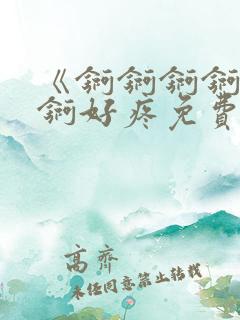 《锕锕锕锕
锕好疼免費
高齊
未经同意禁止转载